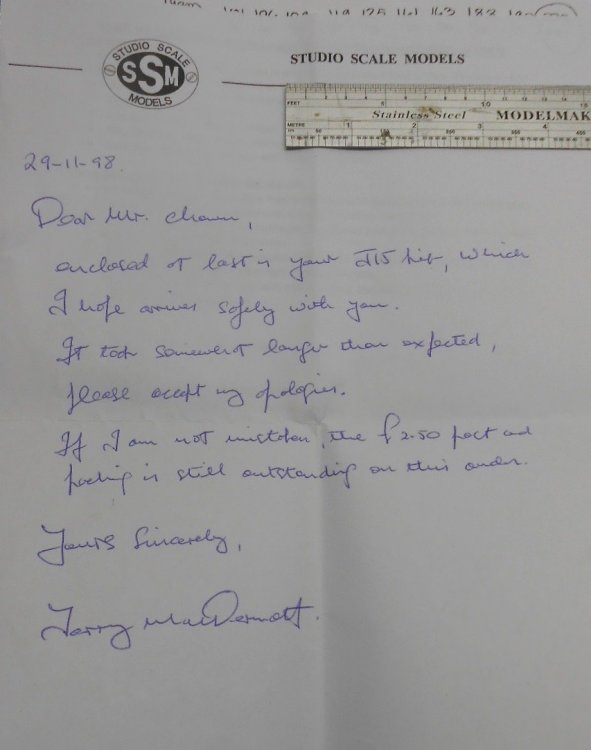 171 163 183
STUDIO SCALE
SSM
MODELS
STUDIO SCALE MODELS
FEET 5 10 15
Stainless Steel MODELMAK
METRE 1 2 3 4
29-11-98.
Dear Mr.
enclosed at last is your J15 kit, which
I hope arrives safely with you.
It took somewhat longer than expected,
please accept my apologies.
If I am not mistaken, the £2.50 post and
packing is still outstanding on this order.
Yours Sincerely,
Terry MacDermott.